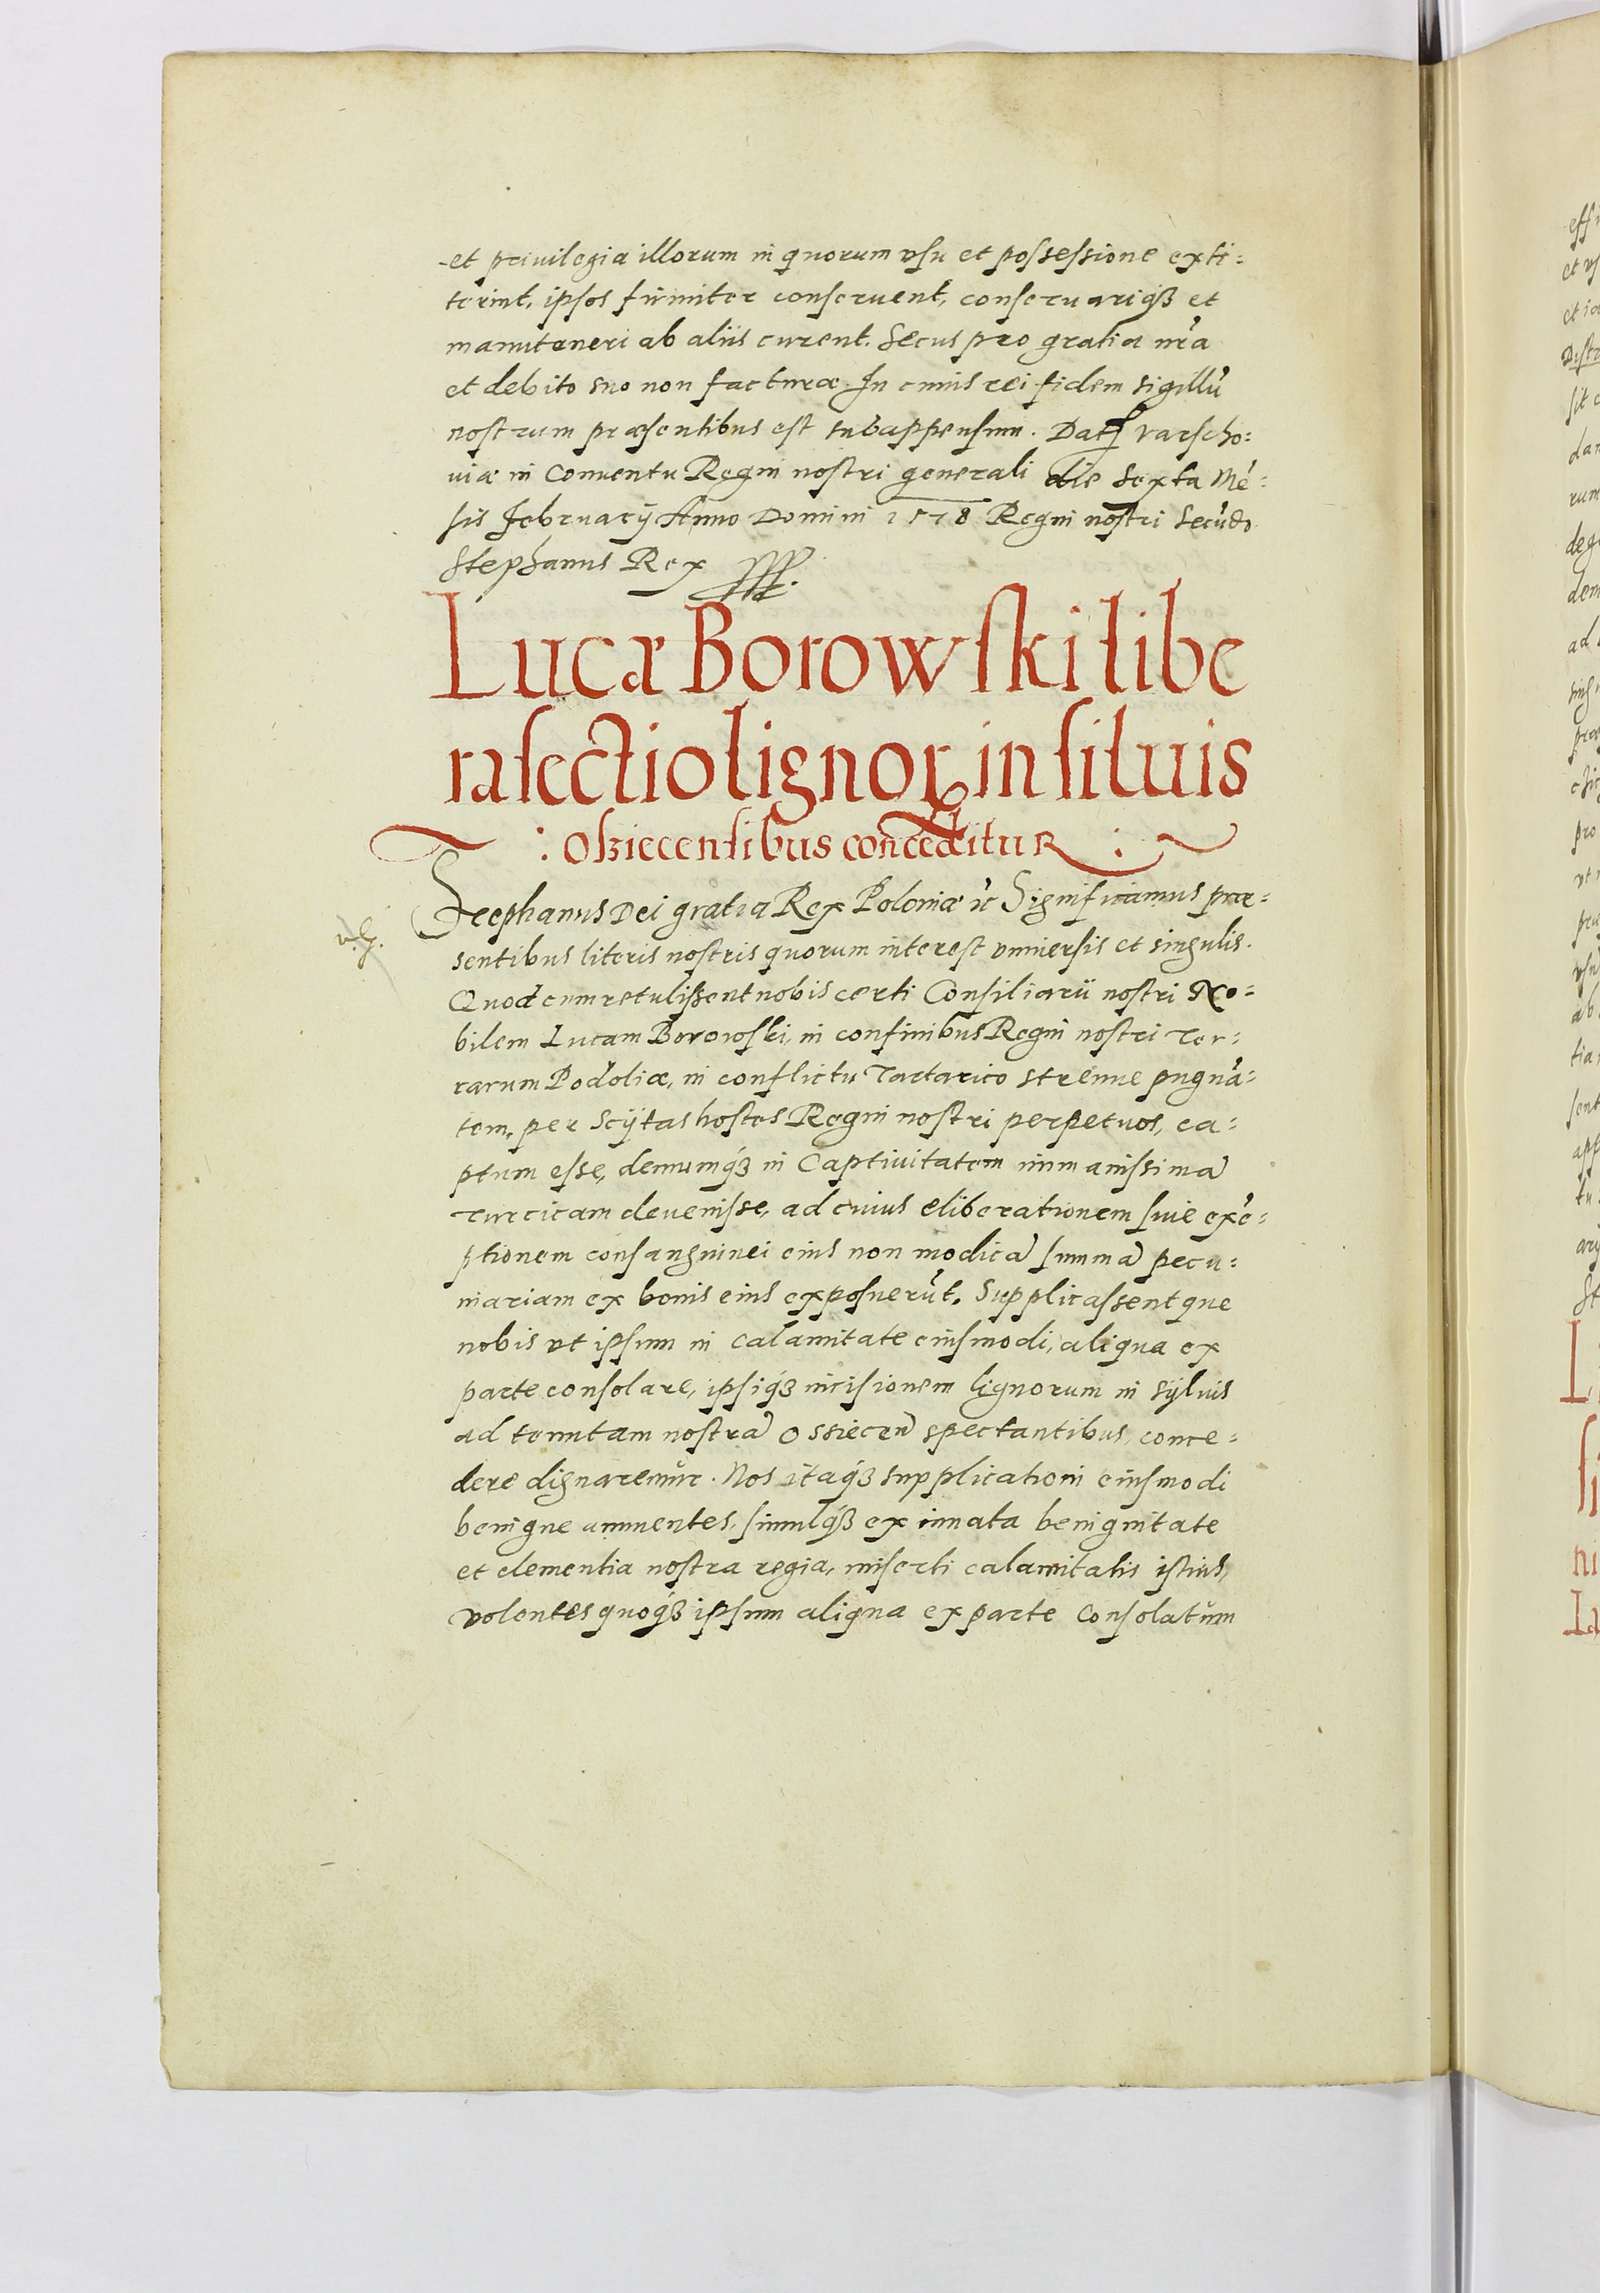 et privilegia illorum in quorum vsu et possessione exti:
terint, ipsos firmiter conseruent, conseruariq́ꝫ et
manuteneri ab aliis curent. Secus pro gratia nr̃a
et debito suo non facturæ. In cuius rei fidem sigillũ
nostrum præsentibus est subappensum. Datꝭ Varscho:
uiæ in Conuentu Regni nostri generali die sexta Mẽ:
sis February Anno Domini 1578 Regni nostri Secũdo
Stephanus Rex
Lucæ Borowski libe
ra sectio lignoꝝ in siluis
: Osziecensibus conceditur :
Stephanus Dei gratia Rex Poloniæ ec̃ Significamus præ:
sentibus literis nostris quorum interest vniuersis et singulis.
Quod cum retulissent nobis certi Consiliarii nostri No:
bilem Lucam Borowski, in confinibus Regni nostri Ter:
rarum Podoliæ, in conflictu Tartarico strenue pugnã:
tem, per Scÿtas hostes Regni nostri perpetuos, ca:
ptum esse, demumq́ꝫ in Captiuitatem immanissimã
Turcicam deuenisse, ad cuius eliberationem siue exẽ:
ptionem consanguinei eius non modicã summã pecu:
niariam ex bonis eius exposuerũt. Supplicassentque
nobis vt ipsum in calamitate eiusmodi, aliqua ex
parte consolare, ipsiq́ꝫ incisionem lignorum in sÿluis
ad tenutam nostrã Ossiecen̄ spectantibus, conce:
dere dignaremur. Nos itaq́ꝫ supplicationi eiusmodi
benigne annuentes, simulq́ꝫ ex innata benignitate
et clementia nostra regia, miserti calamitatis istius,
volentes quoq́ꝫ ipsum aliqua ex parte consolatum